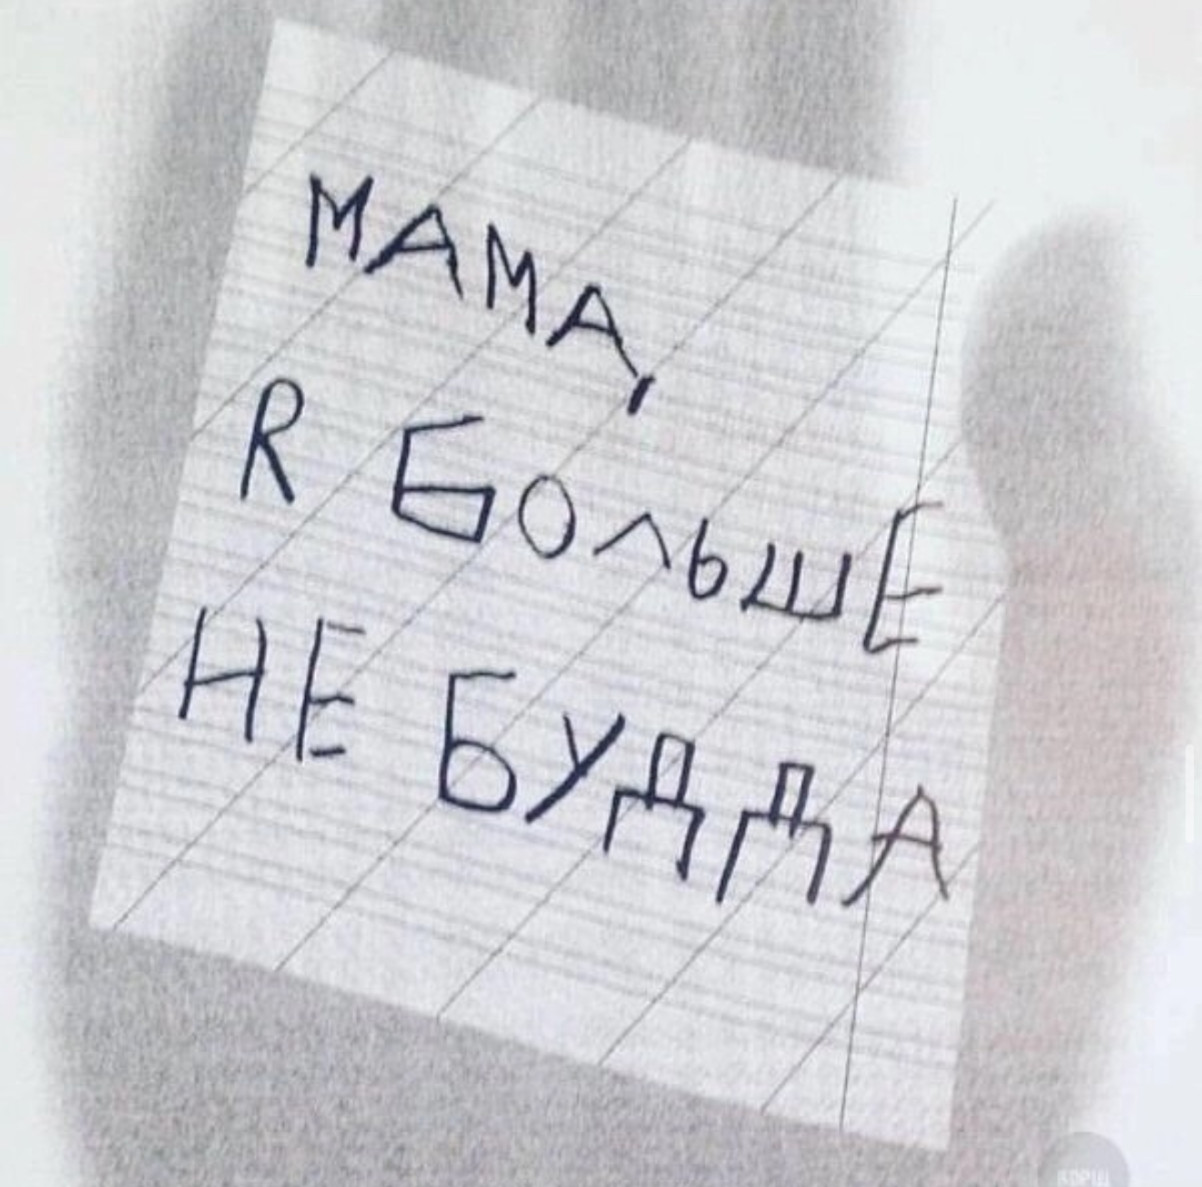 МАМА,
R БОЛЬШЕ
НЕ БУДДА